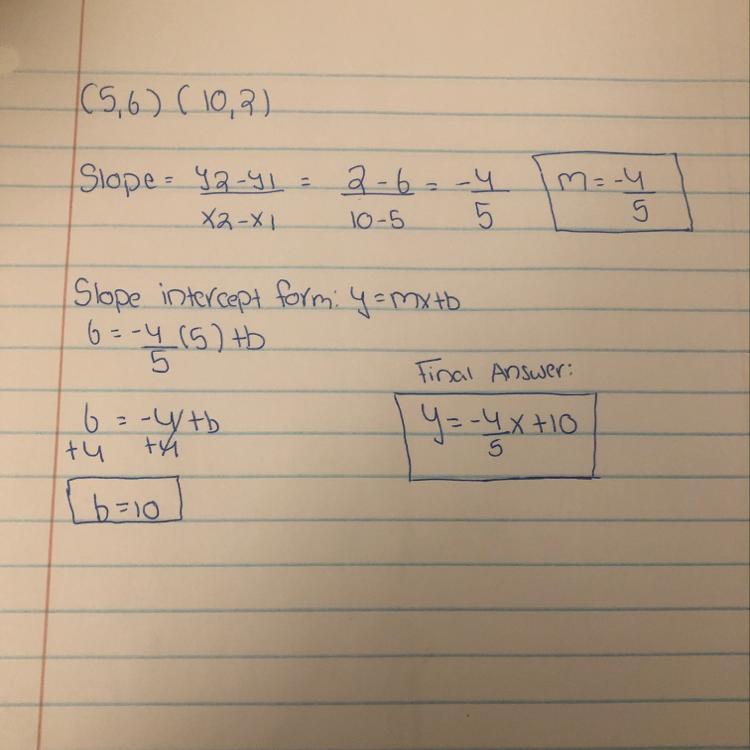 (5,6) (10,2)
Slope = y2-y1/x2-x1 = 2-6/10-5 = -4/5 m = -4/5
Slope intercept form: y=mx+b
6 = -4/5 (5) + b
Final Answer:
6 = -4+b
y = -4/5 x + 10
+4 +4
b=10